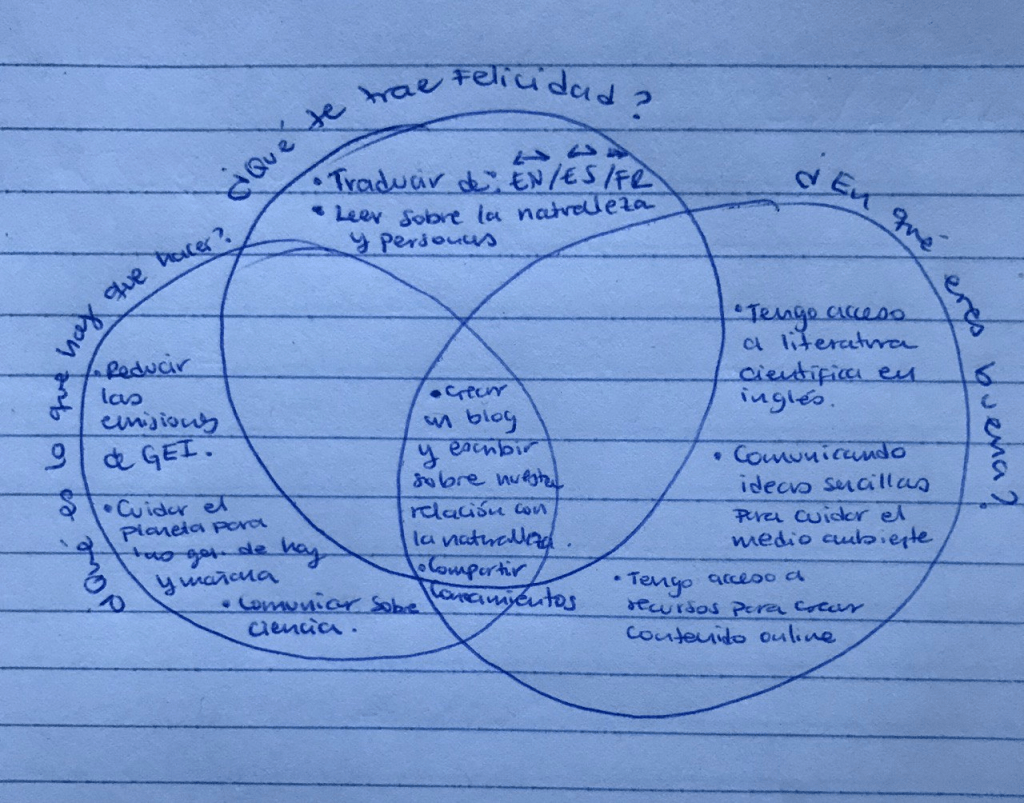 ¿Qué te trae Felicidad?
• Traducir de: EN/ES/FR
• Leer sobre la naturaleza
y personas
¿Qué es lo que hay que hacer?
• Reducir
las
emisiones
de GEI.
• Cuidar el
planeta para
las gen. de hoy
y mañana
• Comunicar sobre
ciencia.
• Crear
un blog
y escribir
sobre nuestra
relación con
la naturaleza.
• Compartir
¿En qué eres buena?
• Tengo acceso
a literatura
científica en
inglés.
• Comunicando
ideas sencillas
para cuidar el
medio ambiente
• Tengo acceso a
recursos para crear
contenido online